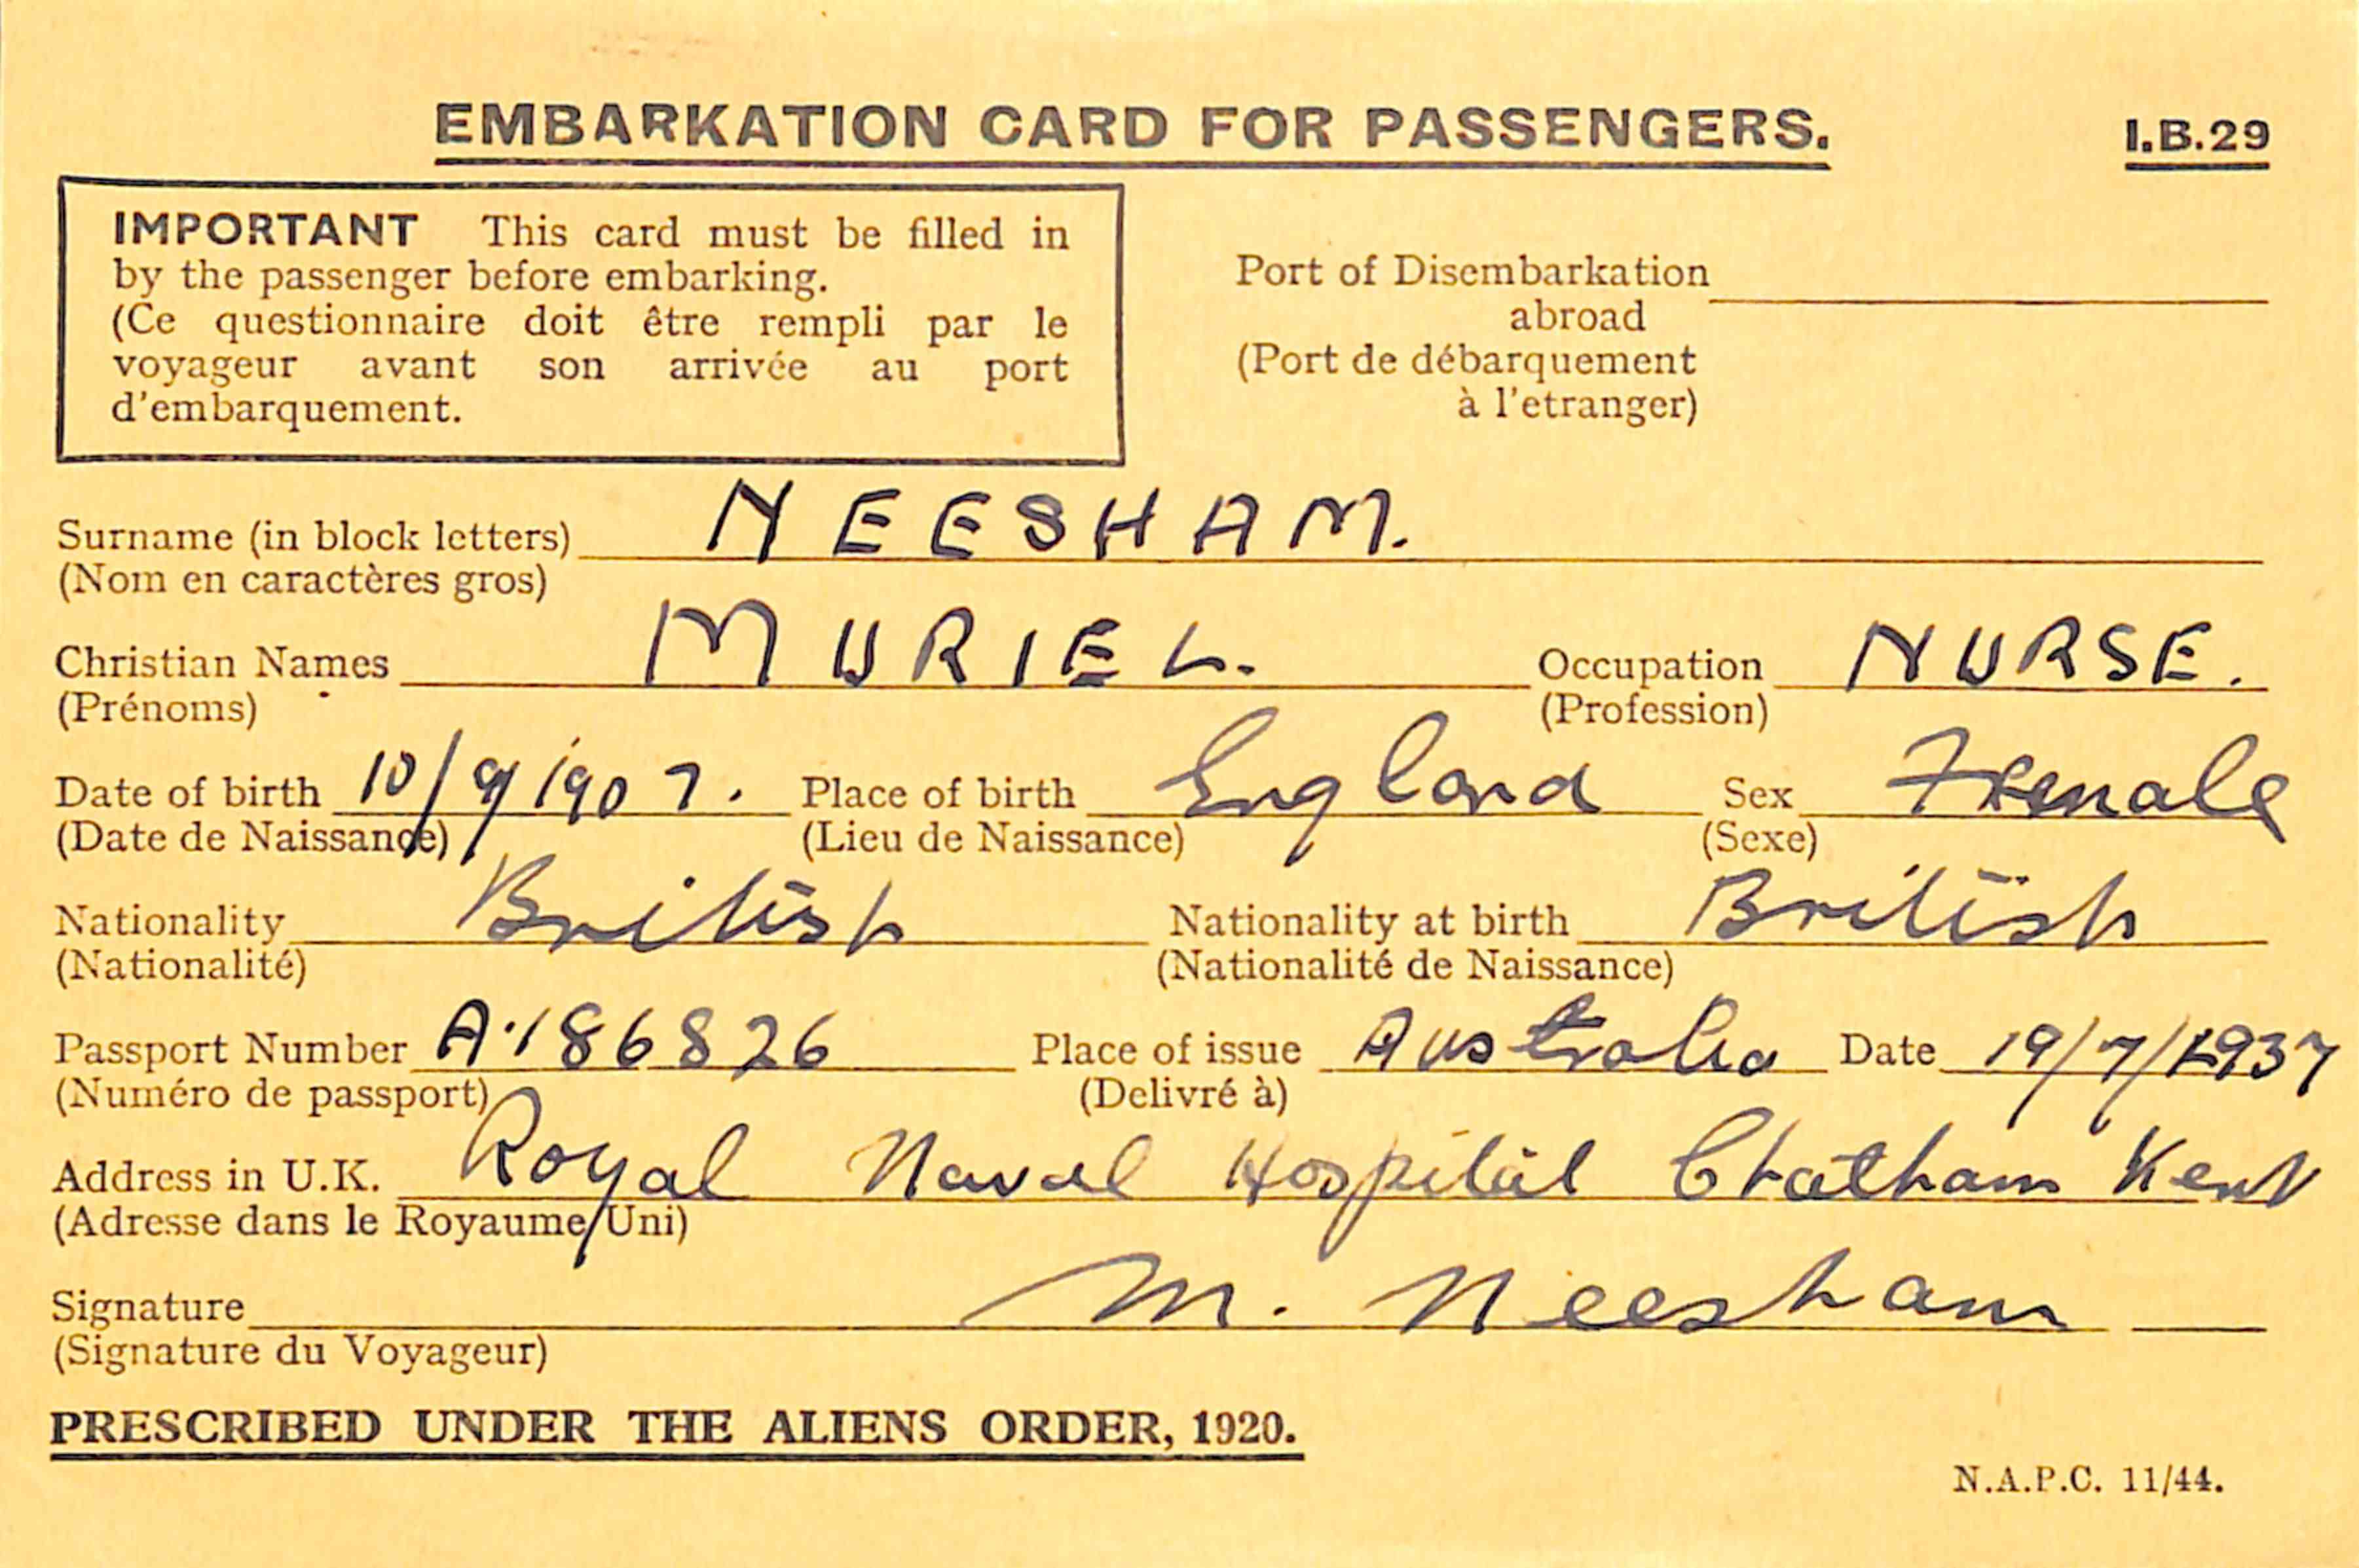 EMBARKATION CARD FOR PASSENGERS.
I.B.29
IMPORTANT This card must be filled in
by the passenger before embarking.
(Ce questionnaire doit être rempli par le
voyageur avant son arrivée au port
d'embarquement.
Port of Disembarkation
abroad
(Port de débarquement
à l'etranger)
Surname (in block letters) NEESHAM.
(Nom en caractères gros)
Christian Names MURIEL. Occupation NURSE.
(Prénoms) (Profession)
Date of birth 10/9/1907. Place of birth England Sex Female
(Date de Naissance) (Lieu de Naissance) (Sexe)
Nationality British Nationality at birth British
(Nationalité) (Nationalité de Naissance)
Passport Number A.186826 Place of issue Australia Date 19/7/1937
(Numéro de passport) (Delivré à)
Address in U.K. Royal Naval Hospital Chatham Kent
(Adresse dans le Royaume/Uni)
Signature M. Neesham
(Signature du Voyageur)
PRESCRIBED UNDER THE ALIENS ORDER, 1920.
N.A.P.C. 11/44.